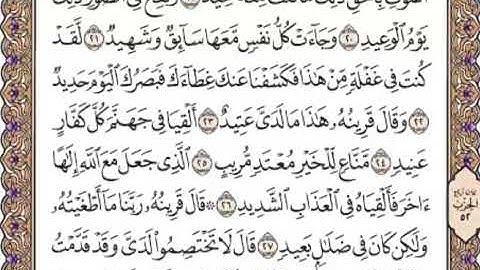 يَوْمُ ٱلْوَعِيدِ ٢٠ وَجَآءَتْ كُلُّ نَفْسٍ مَّعَهَا سَآئِقٌ وَشَهِيدٌ ٢١ لَّقَدْ
كُنتَ فِى غَفْلَةٍ مِّنْ هَٰذَا فَكَشَفْنَا عَنكَ غِطَآءَكَ فَبَصَرُكَ ٱلْيَوْمَ حَدِيدٌ
٢٢ وَقَالَ قَرِينُهُۥ هَٰذَا مَا لَدَىَّ عَتِيدٌ ٢٣ أَلْقِيَا فِى جَهَنَّمَ كُلَّ كَفَّارٍ
عَنِيدٍ ٢٤ مَّنَّاعٍ لِّلْخَيْرِ مُعْتَدٍ مُّرِيبٍ ٢٥ ٱلَّذِى جَعَلَ مَعَ ٱللَّهِ إِلَٰهًا
ءَاخَرَ فَأَلْقِيَاهُ فِى ٱلْعَذَابِ ٱلشَّدِيدِ ٢٦ ۞ قَالَ قَرِينُهُۥ رَبَّنَا مَآ أَطْغَيْتُهُۥ
وَلَٰكِن كَانَ فِى ضَلَٰلٍۭ بَعِيدٍ ٢٧ قَالَ لَا تَخْتَصِمُوا۟ لَدَىَّ وَقَدْ قَدَّمْتُ
الحزب
٥٢